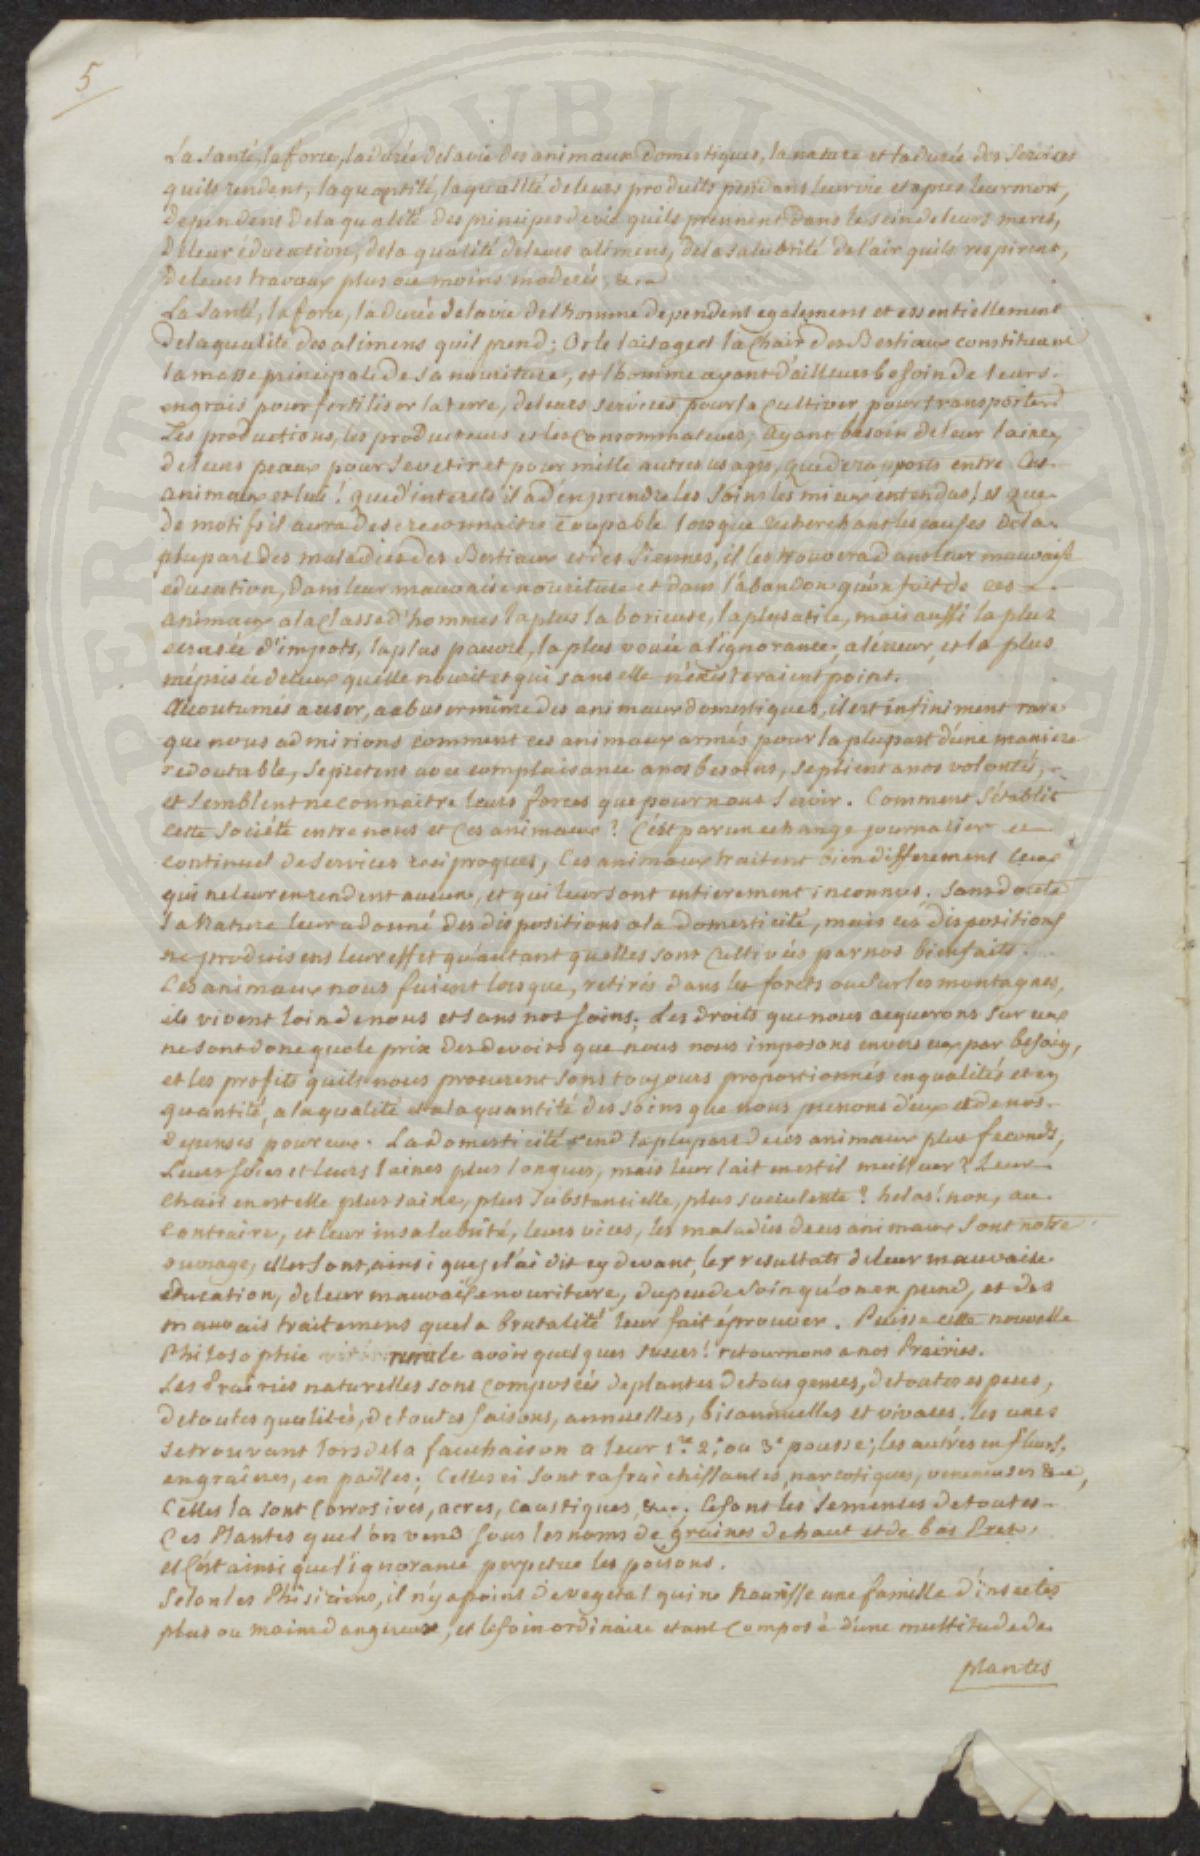 5
La Santé, la force, la durée de la vie des animaux domestiques, la nature et la durée des services
quils rendent, la quantité, la qualité de leurs produits pendans leur vie et apres leur mort,
dependens de la qualité des principes de vie quils prennent dans le sein de leurs meres,
de leur éducation, de la qualité de leurs alimens, de la salubrité de l'air quils respirent,
de leurs travaux plus ou moins moderés, &.a
La Santé, la force, la durée de la vie de l'homme dependens egalement et essentiellement
de la qualité des alimens quil prend; Or le laitage et la Chair des Bestiaux constituant
la masse principale de sa nouriture, et l'homme ayant d'ailleurs besoin de leurs
engrais pour fertiliser la terre, de leurs services pour la Cultiver pour transporter
Les productions, les producteurs et les Consommateurs; Ayant besoin de leur laine,
de leurs peaux pour se vetir et pour mille autres usages, que de rapports entre Ces
animaux et lui! que d'interets il a d'en prendre les soins les mieux entendus! et que
de motifs il aura de se reconnaitre Coupable lorsque recherchant les causes de la
plupart des maladies des Bestiaux et des Siennes, il les trouvera dans leur mauvaise
education, dans leur mauvaise nouriture et dans l'abandon qu'on fait de ces
animaux a la Classe d'hommes la plus laborieuse, la plus utile, mais aussi la plus
ecrasée d'impots, la plus pauvre, la plus vouée a l'ignorance, a l'erreur, et la plus
méprisée de ceux quelle nourit et qui sans elle n'existeraient point.
Accoutumés a user, a abuser même des animaux domestiques, il est infiniment rare
que nous admirions comment ces animaux armés pour la plupart d'une maniere
redoutable, se pretens avec complaisance a nos besoins, se plient a nos volontés,
et semblent ne connaitre leurs forces que pour nous servir. Comment s'établit
cette Société entre nous et Ces animaux? C'est par un echange journalier et
continuel de services reciproques, Ces animaux traitent bien differemens ceux
qui ne leur en rendent aucun, et qui leur sont entierement inconnus. Sans doute
la Nature leur a donné des dispositions a la domesticité, mais ces dispositions
ne produisens leur effet qu'autant quelles sont Cultivées par nos bienfaits.
Ces animaux nous fuient lorsque, retirés dans les forets ou sur les montagnes,
ils vivent loin de nous et sans nos soins; Les droits que nous acquerons sur eux
ne sont donc que le prix des devoirs que nous nous imposons envers eux par besoin,
et les profits quils nous procurent sont toujours proportionnés en qualités et en
quantité, a la qualité et a la quantité des soins que nous prenons d'eux et de nos
depenses pour eux. La domesticité rend la plupart de ces animaux plus feconds,
Leurs soies et leurs laines plus longues, mais leur lait en est il meilleur? Leur
Chair en est elle plus saine, plus substancielle, plus succulente? helas! non, au
contraire, et leur insalubrité, leurs vices, les maladies de ces animaux sont notre
ouvrage, elles sont, ainsi que je l'ai dit cy devant, les resultats de leur mauvaise
éducation, de leur mauvaise nouriture, du peu de soin qu'on en prend, et des
mauvais traitemens que la brutalité leur fait éprouver. Puisse cette nouvelle
Philosophie rurale avoir quelques succes! retournons a nos Prairies.
Les Prairies naturelles sont Composées de plantes de tous genres, de toutes especes,
de toutes qualités, de toutes saisons, annuelles, bisannuelles et vivaces. les unes
se trouvant lors de la fauchaison a leur 1.re 2.e ou 3.e pousse; les autres en fleurs,
en graines, en pailles; Celles ci sont rafraichissantes, narcotiques, veneneuses &.a,
Celles la sont Corrosives, acres, Caustiques, &.a; Ce sont les semences de toutes
Ces Plantes que l'on vend sous les noms de graines de haut et de bas Prets,
et C'est ainsi que l'ignorance perpetue les poisons.
Selon les Phisiciens, il n'y a point de vegetal qui ne Nourisse une famille d'insectes
plus ou moins dangereux, et le foin ordinaire etant Composé d'une multitude de
plantes